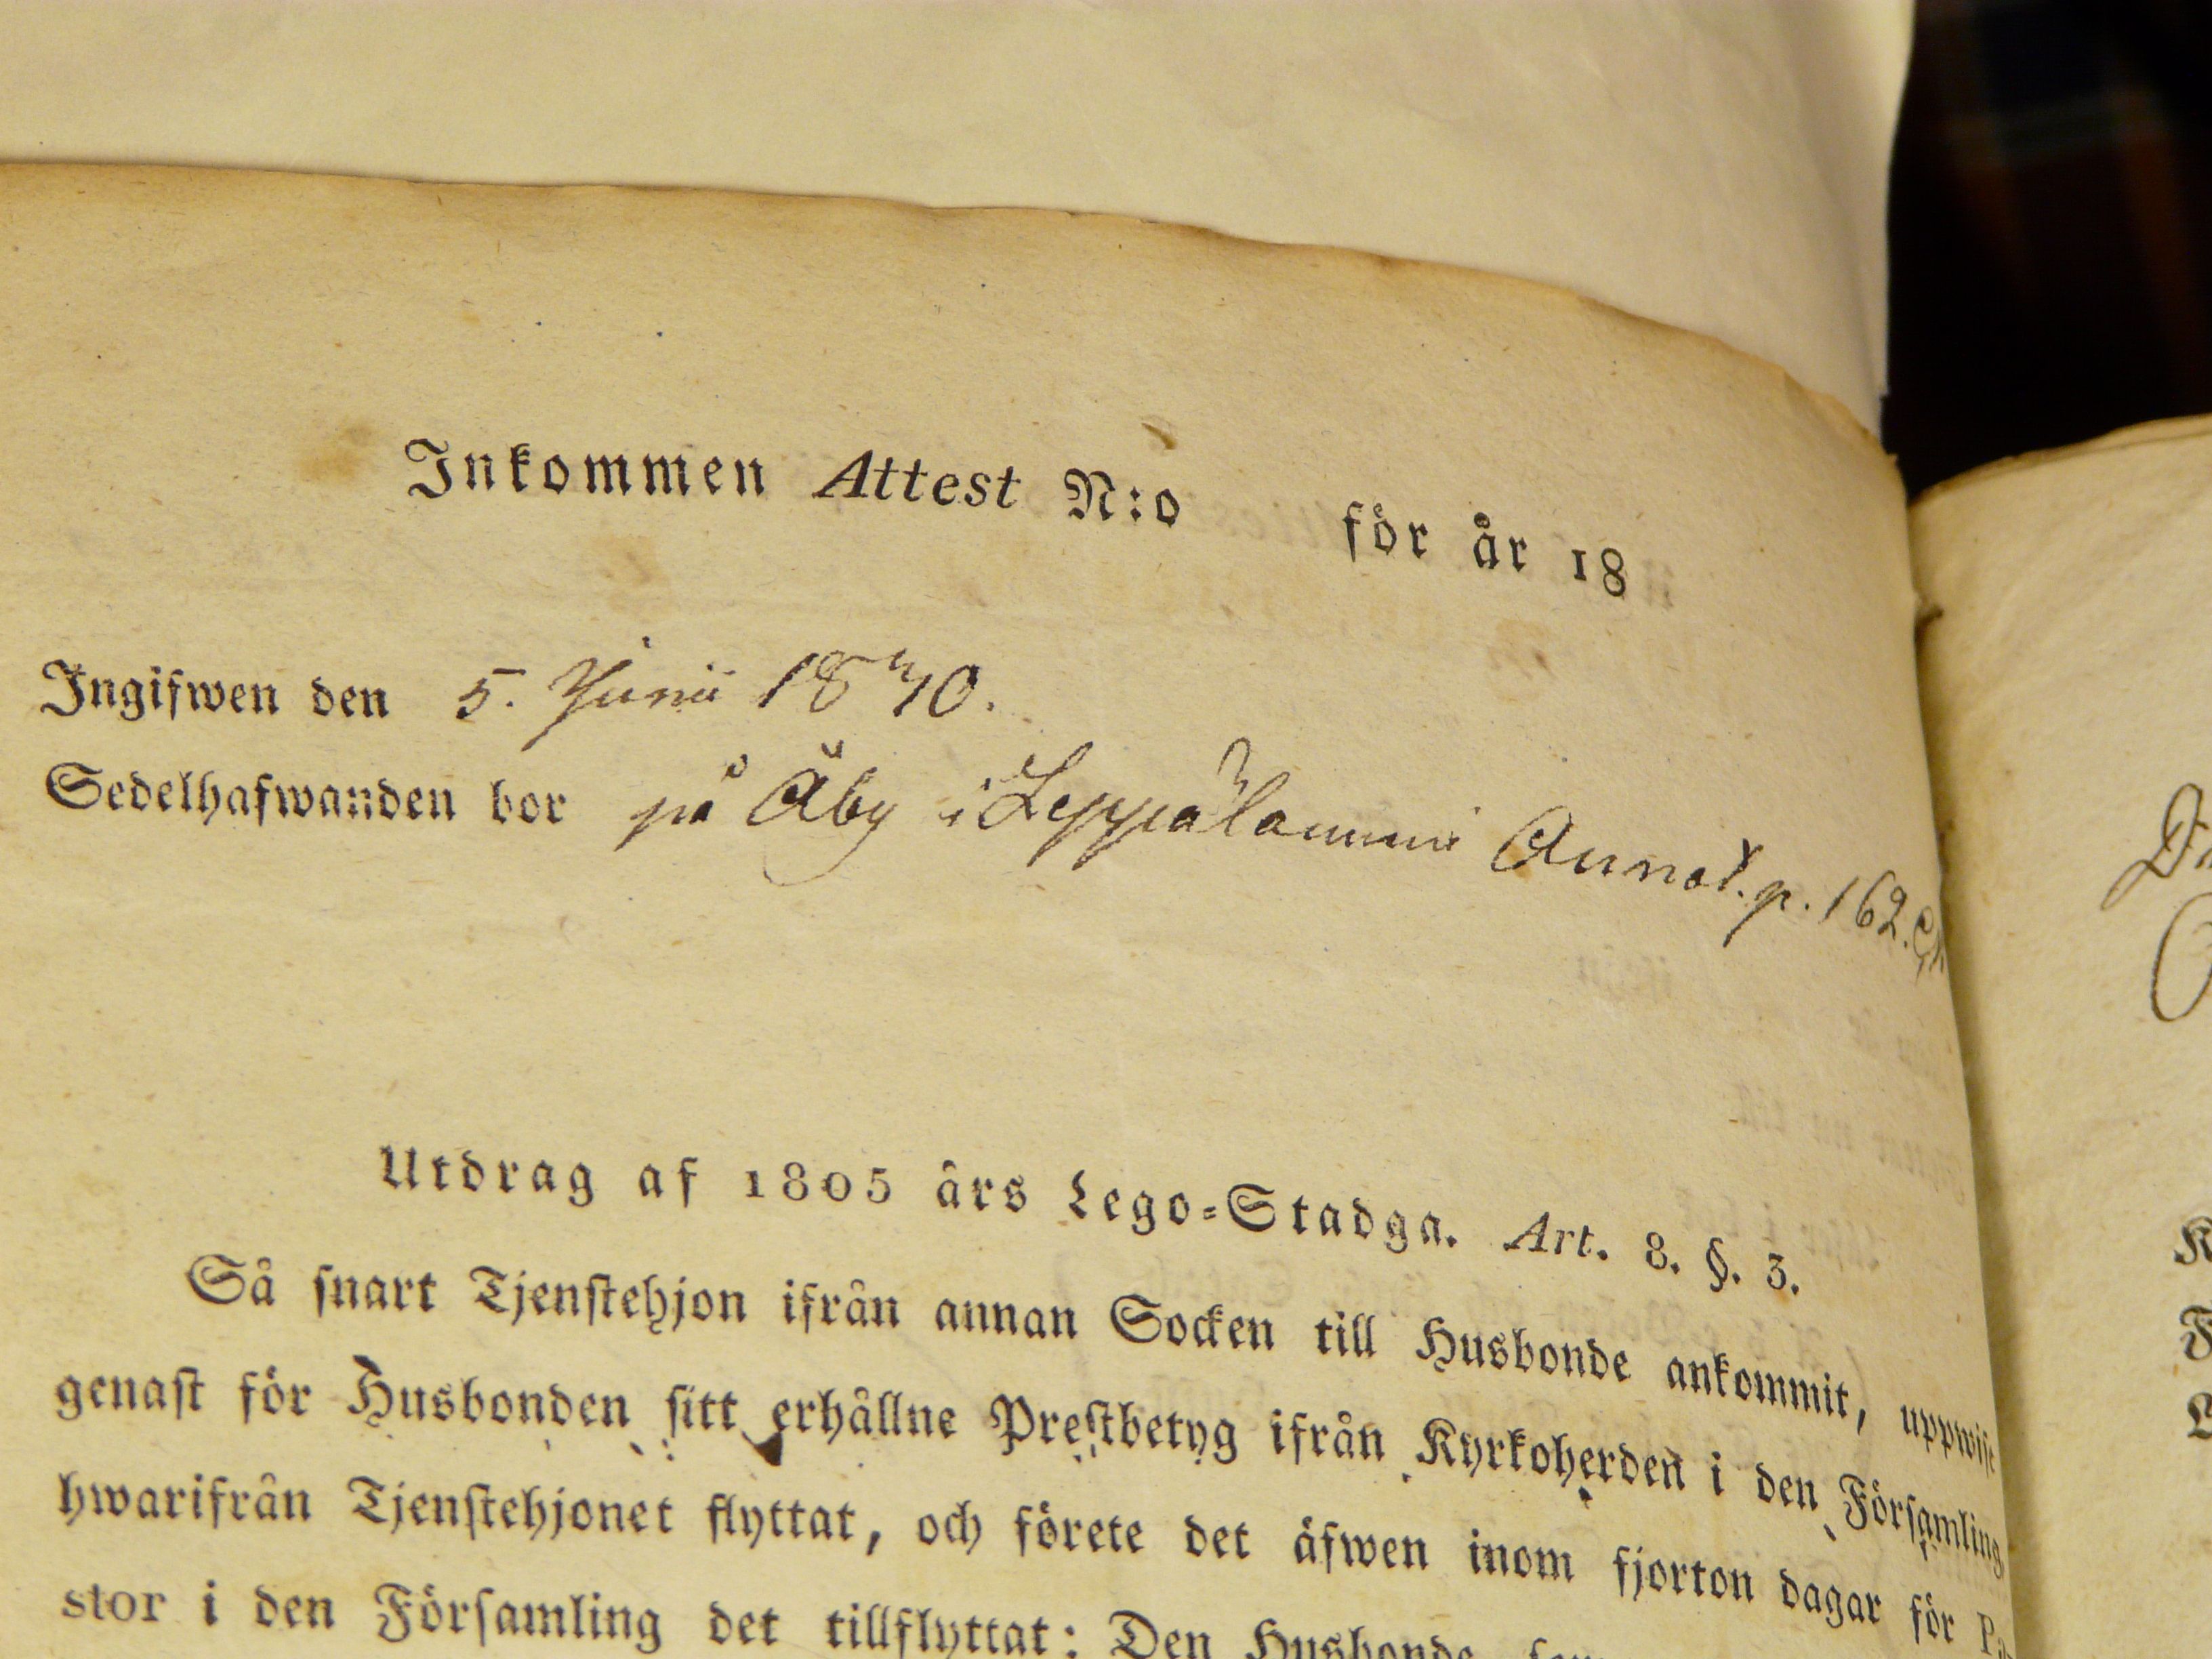 Inkommen Attest N:o för år 18
Ingifwen den 5. Junii 1840.
Sedelhafwanden bor på Åby i Leppälammi Annot. p. 162.
Utdrag af 1805 års Lego=Stadga. Art. 8. §. 3.
Så snart Tjenstehjon ifrån annan Socken till Husbonde ankommit, uppwise
genast för Husbonden sitt erhållne Prestbetyg ifrån Kyrkoherden i den Församling,
hwarifrån Tjenstehjonet flyttat, och förete det äfwen inom fjorton dagar för
stor i den Församling det tillflyttat: Den Husbonde